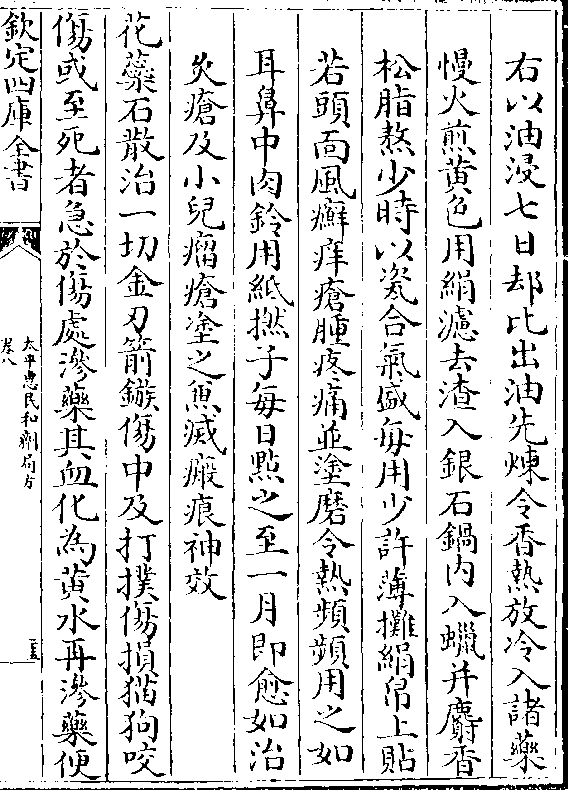 右以油浸七日却比出油先煉令香熟放冷入諸藥
慢火煎黄色用絹濾去渣入銀石鍋内入蠟并麝香
松脂熬少時以瓷合氣盛每用少許薄攤絹帛上貼
若頭面風癬痒瘡腫疼痛並塗磨令熱頻頻用之如
耳鼻中肉鈴用紙撚子每日點之至一月即愈如治
灸瘡及小兒瘤瘡塗之兼滅瘢痕神效
花蘂石散治一切金刃箭鏃傷中及打撲傷損猫狗咬
傷或至死者急於傷處滲藥其血化為黄水再滲藥便
欽定四庫全書
太平惠民和劑局方
卷八